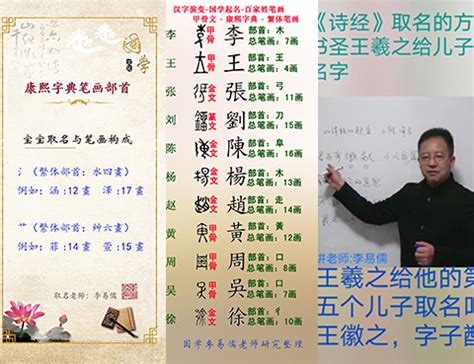 国学
康熙字典笔画部首
宝宝取名与笔画构成
氵(繁体部首:水四畫)
例如:涵:12 畫 泽:17 畫
艹(繁体部首:艸六畫)
例如:菲:14 畫 萱:15 畫
取名老师:李易儒
汉字演变-国学起名-百家姓笔画
甲骨文-康熙字典-繁体笔画
李 甲骨 李 部首:木 总笔画:7画
王 甲骨 王 总笔画:4画
张 金文 張 部首:弓 总笔画:11画
刘 篆文 劉 部首:刀 总笔画:15画
陈 金文 陳 部首:阜 总笔画:16画
杨 金文 楊 部首:木 总笔画:13画
赵 金文 趙 部首:走 总笔画:14画
黄 甲骨 黃 总笔画:12画
周 甲骨 周 部首:口 总笔画:8画
吴 金文 吳 部首:口 总笔画:7画
徐 金文 徐 部首:彳 总笔画:10画
国学 易儒老师研究整理
《诗经》取名的方
书圣王羲之给儿子
名字
讲老师:李易儒
王羲之给他的
五个儿子取名
王徽之,字子